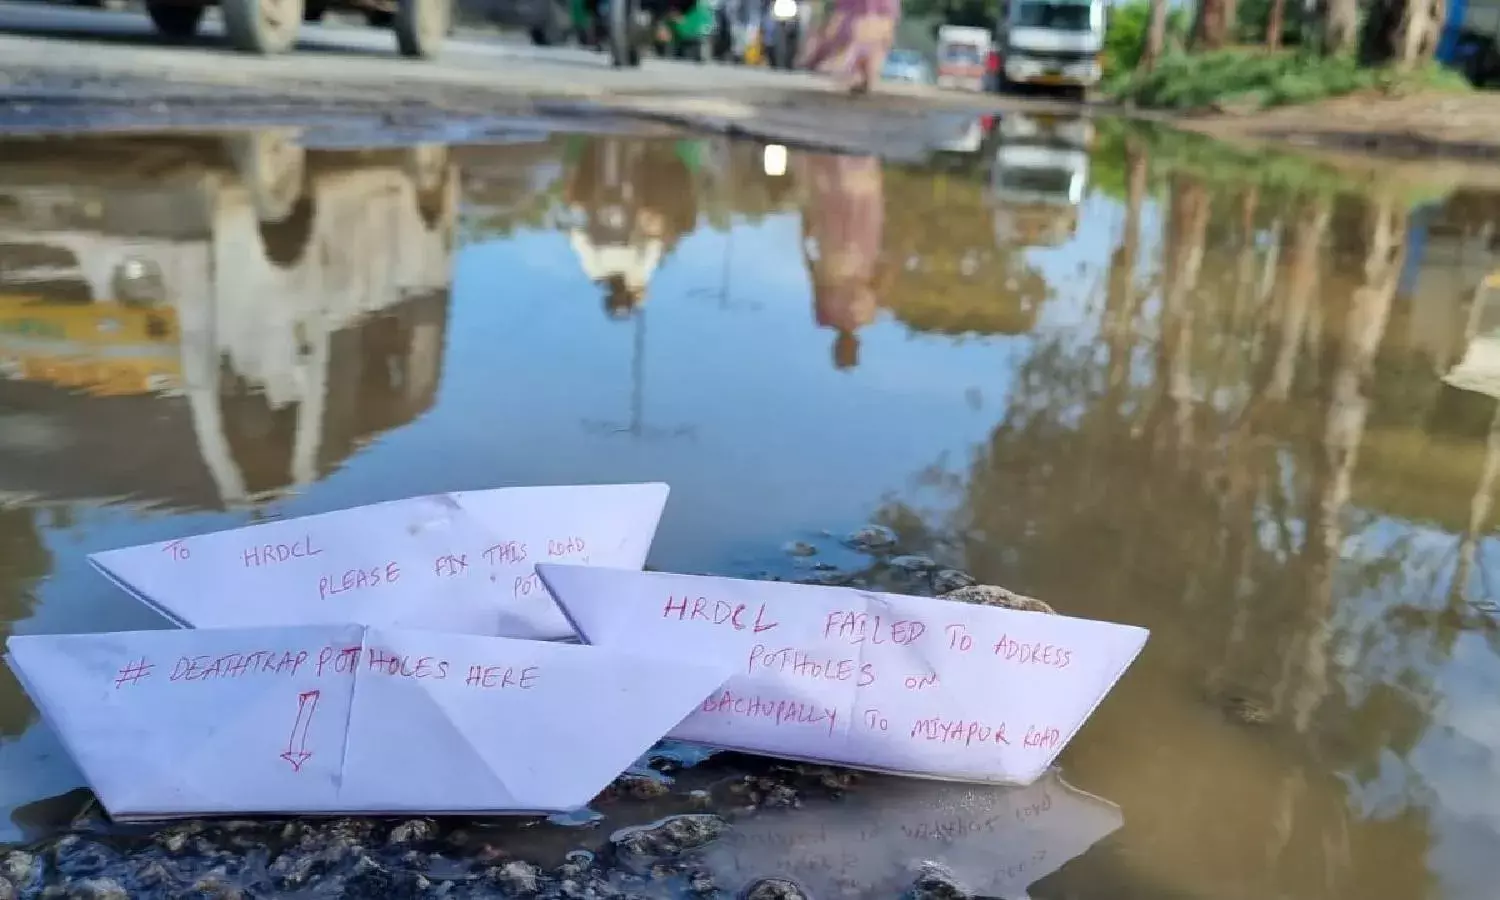 TO HRDCL
PLEASE FIX THIS ROAD
# DEATHTRAP POTHOLES HERE
HRDCL FAILED TO ADDRESS
POTHOLES ON
BACHUPALLY TO MIYAPUR ROAD